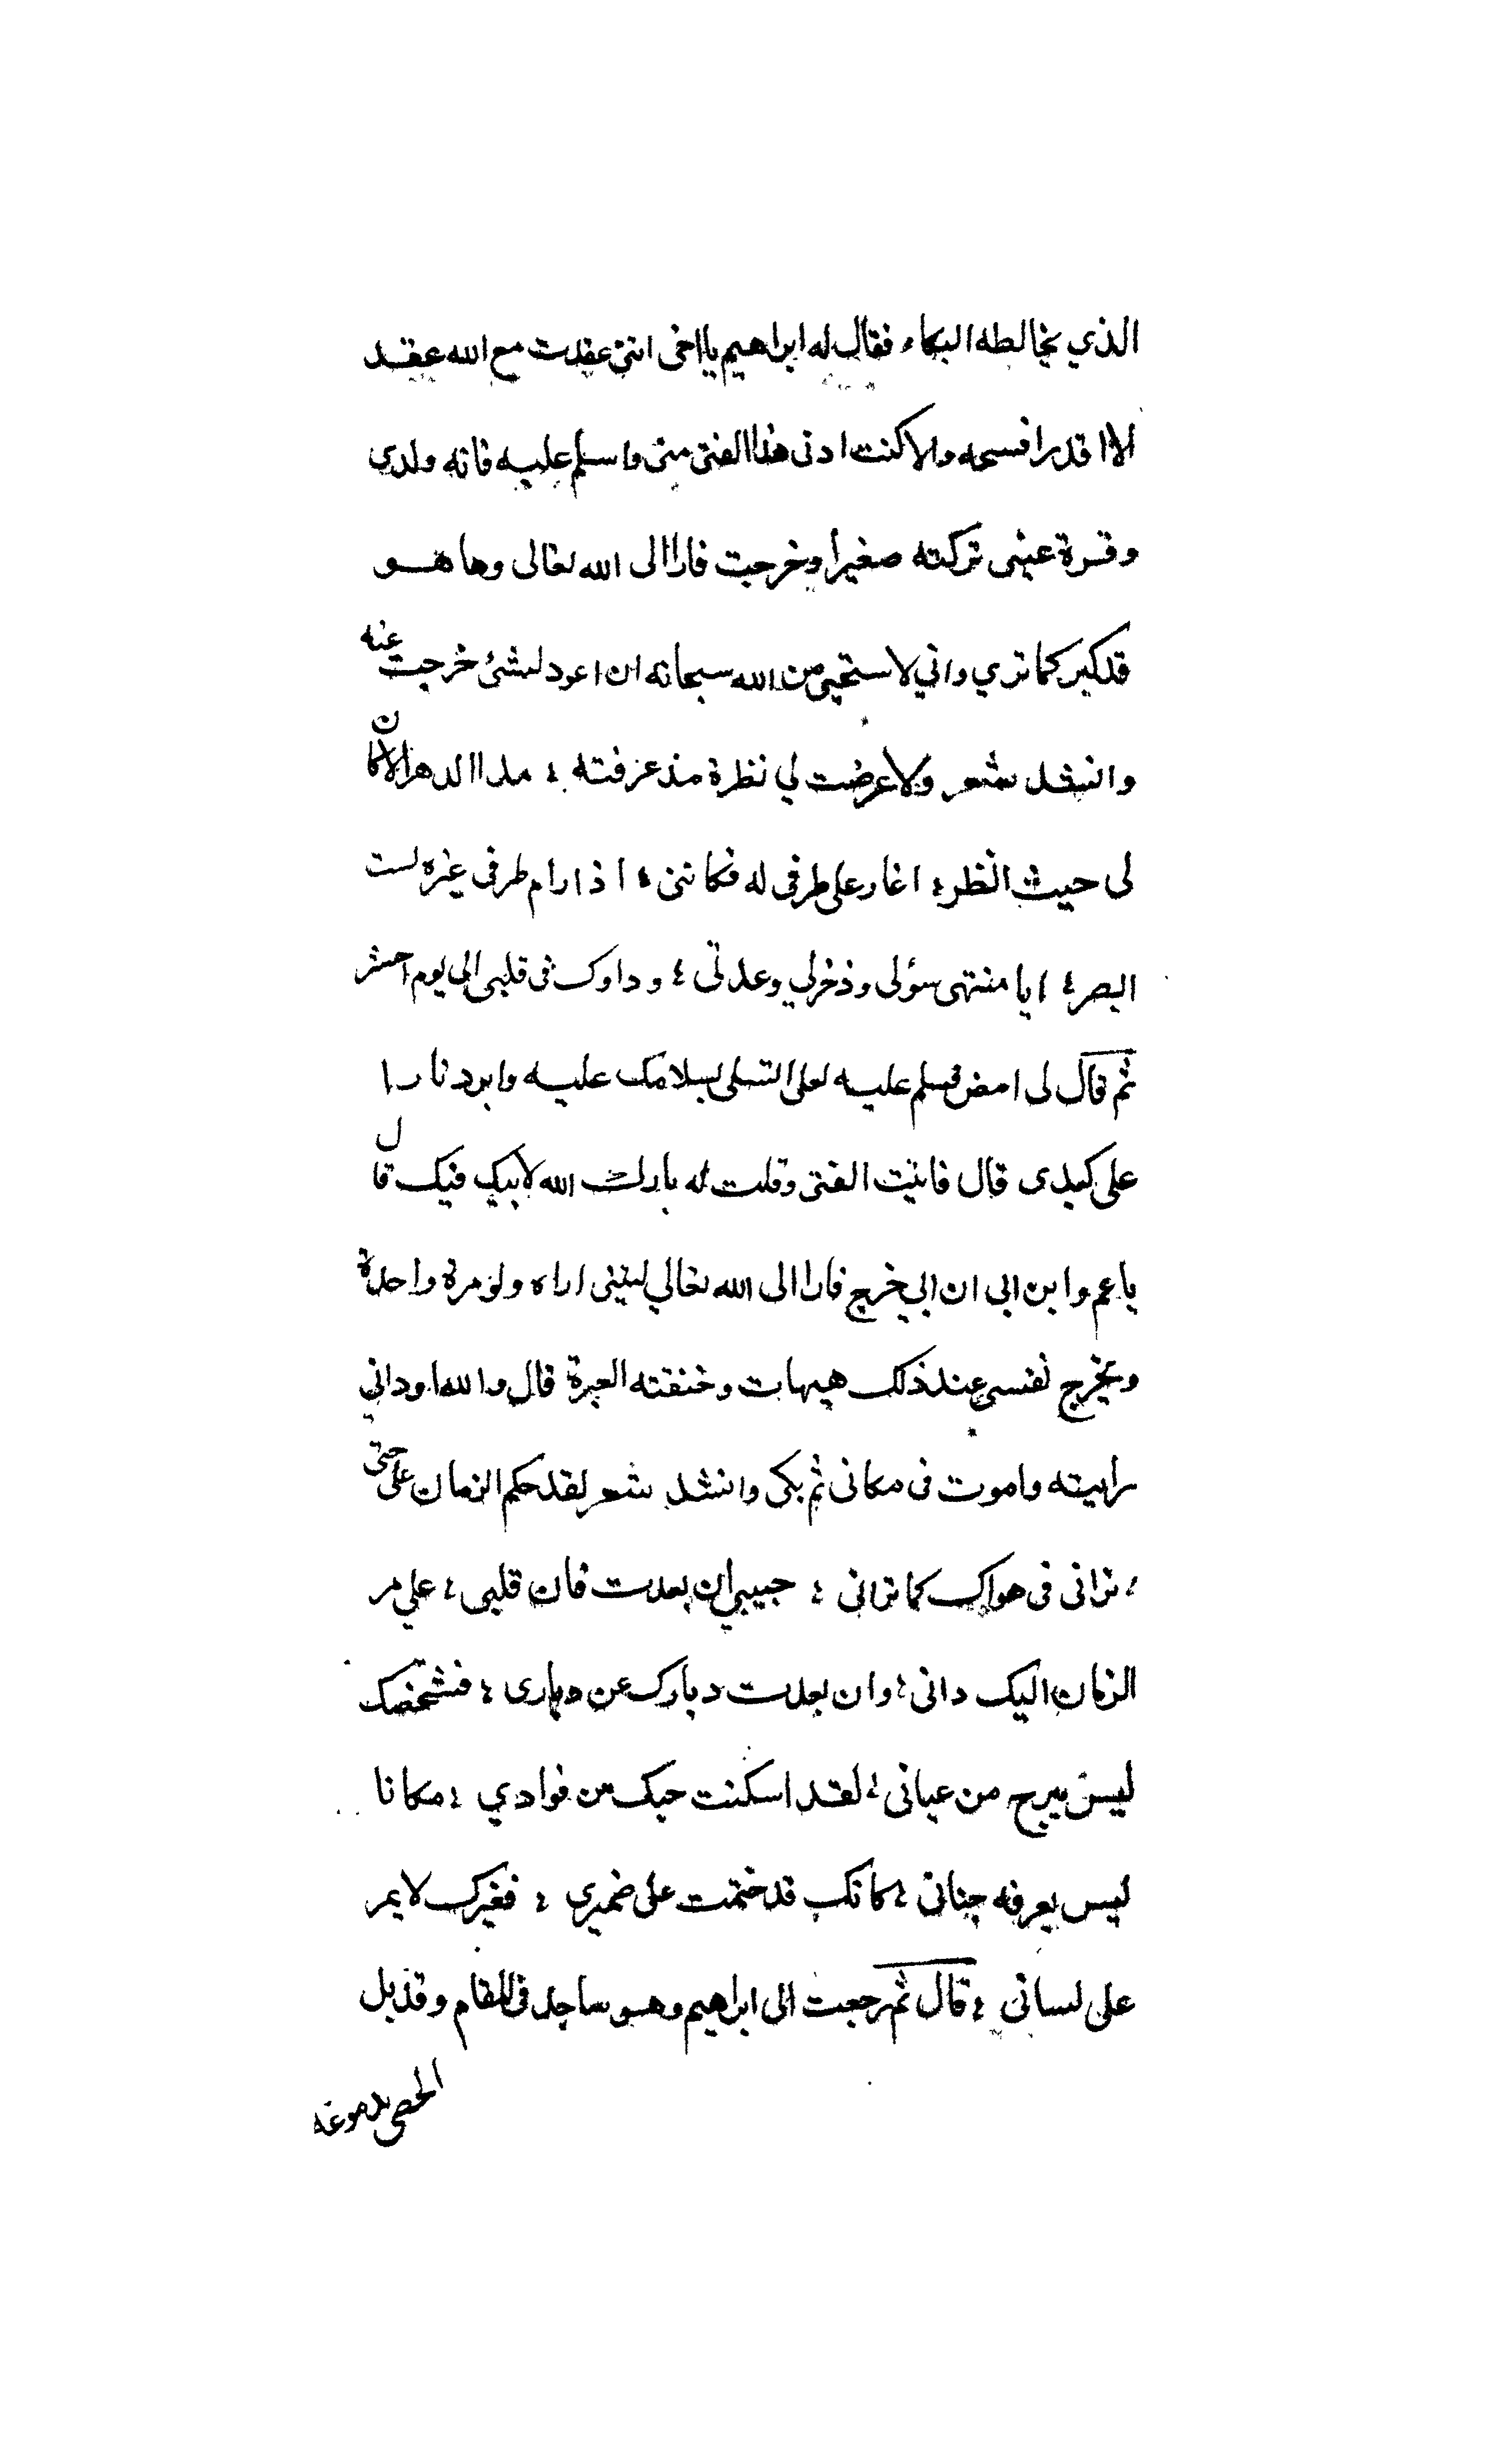 الذي يخالطه البكاء فقال له ابراهيم يا اخي انني عقدت مع الله عقد
الا اقدر افسحه والا كنت ادنى هذا الفتى منى واسلم عليه فانه ولدي
وقرة عينى تركته صغيرا وخرجت فارا الى الله تعالى وها هو
قد كبر كما ترى واني لاستحيى من الله سبحانه ان اعود لشئ خرجت عنه
وانشد شعر ولا عرضت لي نظرة مذ عرفته ؛ مدا الدهر الا كان
لى حيث انظر ؛ اغار على طرفى له فكانني ؛ اذا رام طرفى غيره لست
ابصر ؛ ايا منتهى سؤلى وذخرلي وعدتى ؛ ودادك فى قلبى الى يوم احشر
ثم قال لى امض فسلم عليه لعلى اتسلى بسلامك عليه وابرد نارا
على كبدى قال فاتيت الفتى وقلت له بارك الله لابيك فيك قال
يا عم واين ابى ان ابي خرج فارا الى الله تعالي ليتنى اراه ولو مرة واحدة
وتخرج نفسى عند ذلك هيهات وخنقته العبرة قال والله اود اني
رايته واموت فى مكانى ثم بكى وانشد شعر لقد حكم الزمان على حتى
؛ ترانى فى هواك كما ترانى ؛ حبيبي ان بعدت فان قلبى ؛ علي مر
الزمان اليك دانى ؛ وان بعدت ديارك عن ديارى ؛ فشخصك
ليس يبرح من عيانى ؛ لقد اسكنت حبك من فوادي ؛ مكانا
ليس يعرفه جنانى ؛ كانك قد ختمت على ضميرى ؛ فغيرك لا يمر
على لسانى ؛ قال ثم رجعت الى ابراهيم وهو ساجد فى المقام وقد بل
الحصى بدموعه